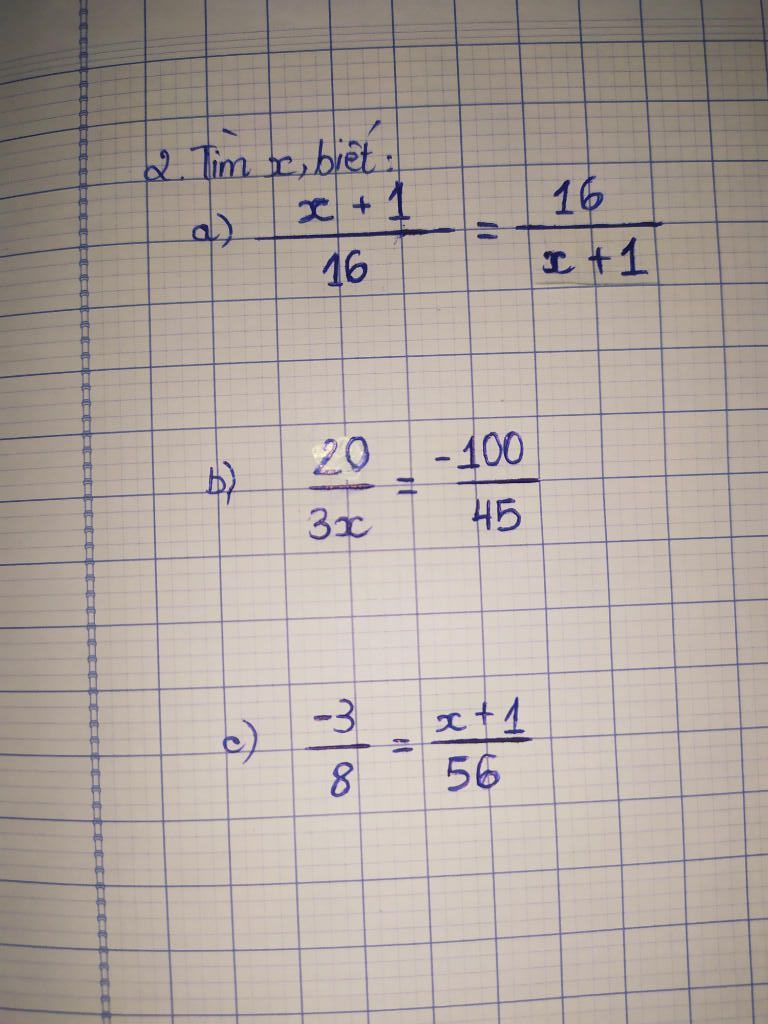 2. Tìm x, biết:
a) x + 1 / 16 = 16 / x + 1
b) 20 / 3x = -100 / 45
c) -3 / 8 = x + 1 / 56